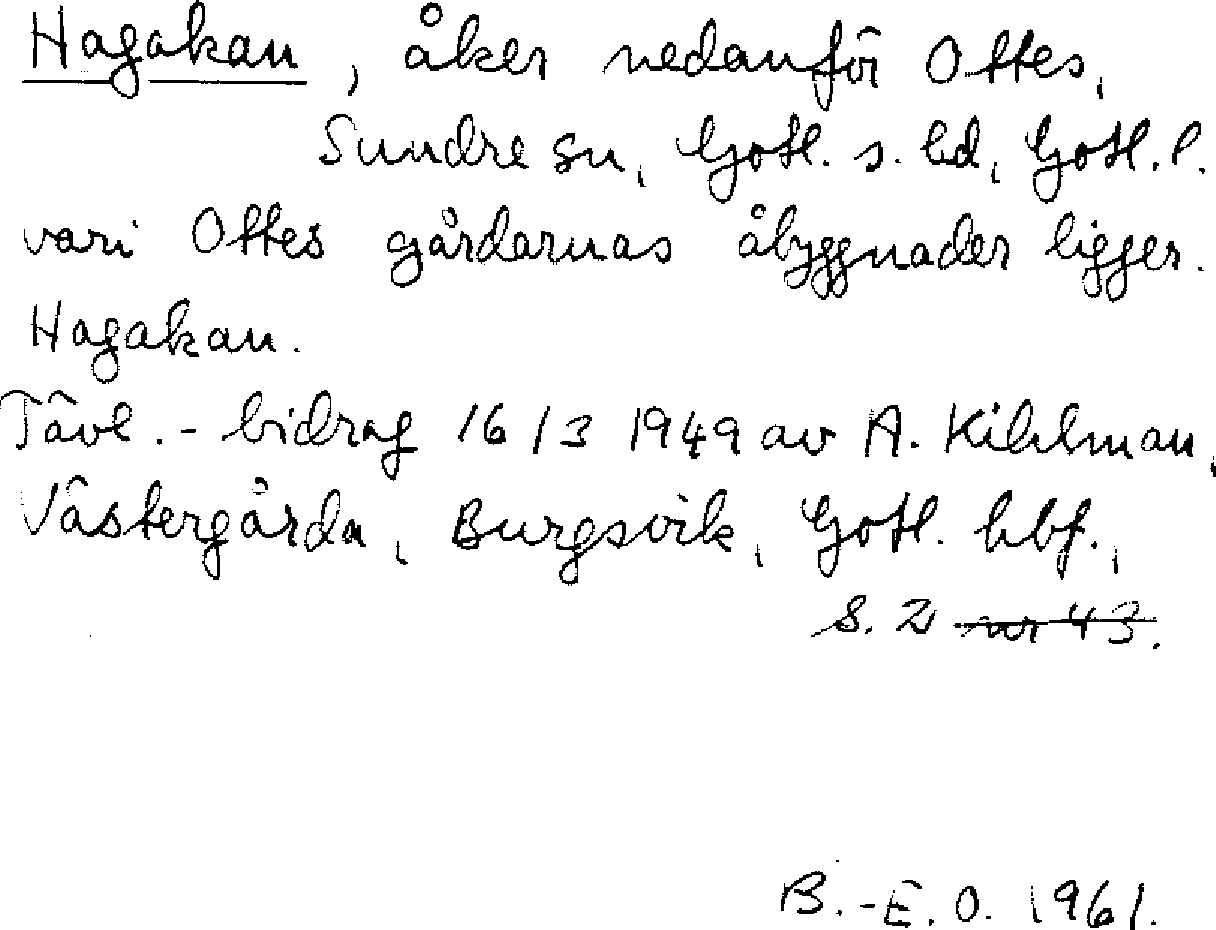 Hagakan, åker nedanför Ottes,
Sundre sn, Gotl. s. hd, Gotl. l.
vari Ottes gårdarnas åbyggnader ligger.
Hagakan.
Tävl.-bidrag 16/3 1949 av A. Kihlman,
Västergårda, Burgsvik, Gotl. hbf.,
s. 2 nr 43.
B.-E. O. 1961.